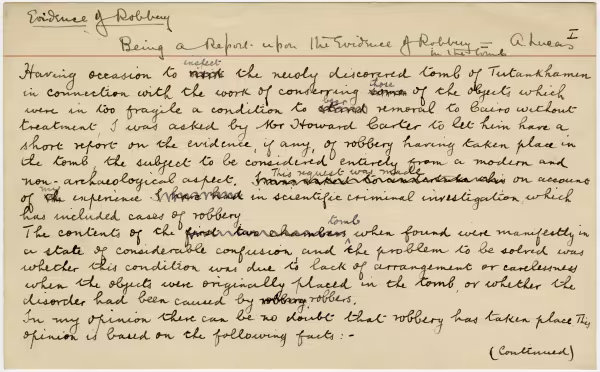 Evidence of Robbery
I
Being a Report upon the Evidence of Robbery in the tomb — A Lucas
Having occasion to inspect the newly discovered tomb of Tutankhamen
in connection with the work of conserving those of the objects which
were in too fragile a condition to bear removal to Cairo without
treatment, I was asked by Mr Howard Carter to let him have a
short report on the evidence, if any, of robbery having taken place in
the tomb, the subject to be considered entirely from a modern and
non-archaeological aspect. This request was made on account
of my experience in scientific criminal investigation which
has included cases of robbery.
The contents of the first two chambers tomb when found were manifestly in
a state of considerable confusion, and the problem to be solved was
whether this condition was due to lack of arrangement or carelessness
when the objects were originally placed in the tomb, or whether the
disorder had been caused by robbery robbers.
In my opinion there can be no doubt that robbery has taken place This
opinion is based on the following facts :-
(Continued)